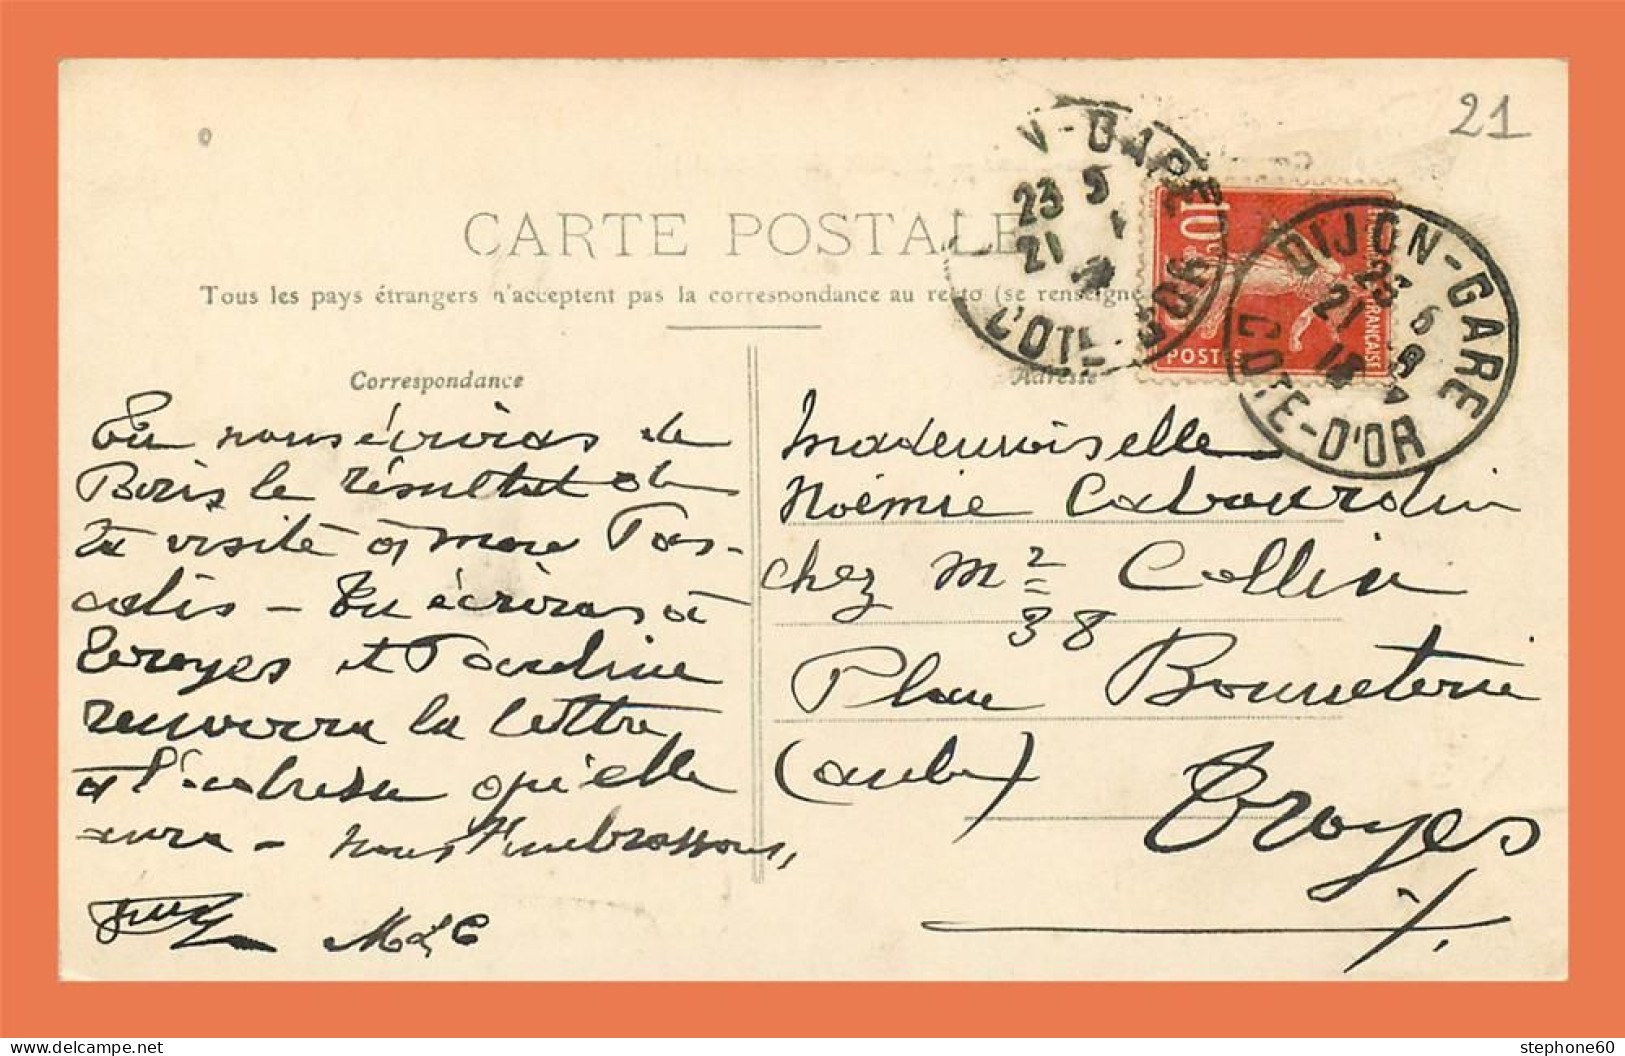 21
CARTE POSTALE
Tous les pays étrangers n'acceptent pas la correspondance au recto (se renseigne
V-GARE
23 5
21
COTE-D'OR
10c
POSTES
FRANÇAISE
DIJON-GARE
23 6
21 8
COTE-D'OR
Correspondance
Adresse
Tu nous écriras de
Paris le résultat de
ta visite à
Tu écriras à
Troyes et Pauline
renverra la lettre
à l'adresse qu'elle
aura - nous t'embrassons,
Mademoiselle
Noémie Cabourdin
chez Mr Collin
38
Place Bonneterie
(aube)
Troyes
stephone60